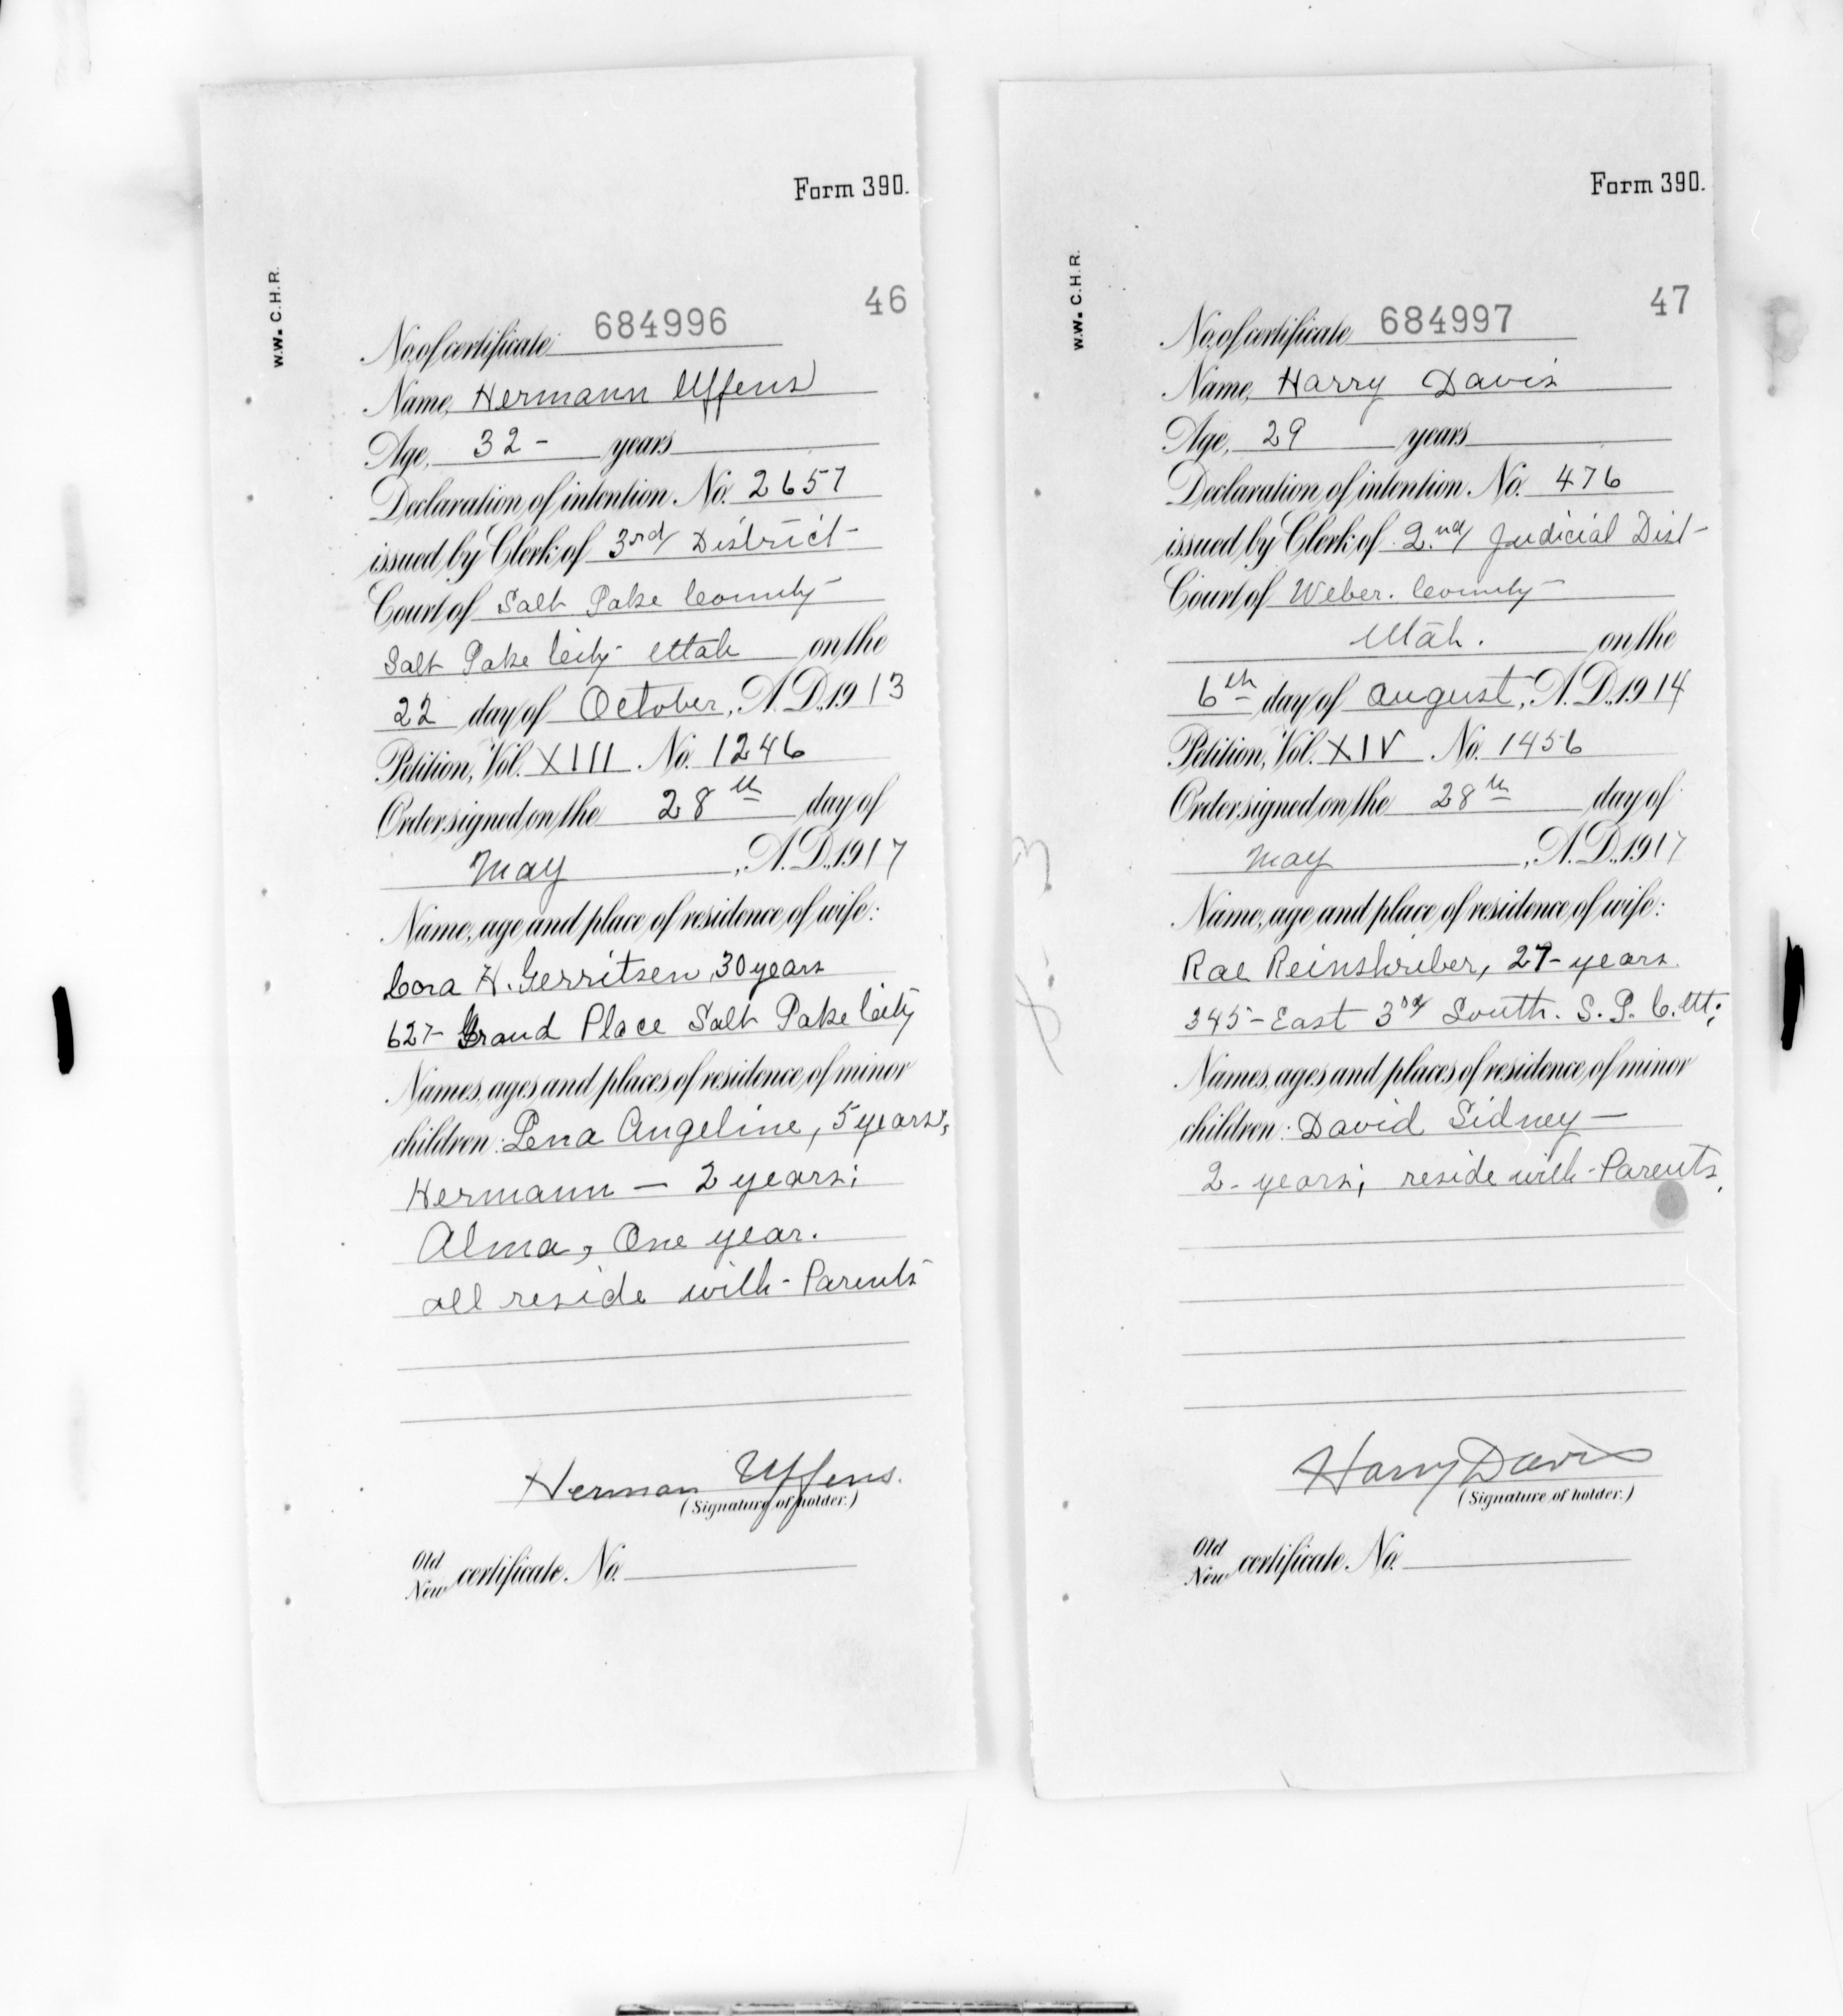 Form 390.
W.W. C.H.R.
46
No. of certificate 684996
Name, Hermann Uffens
Age, 32 - years
Declaration of intention No. 2657
issued by Clerk of 3rd District
Court of Salt Lake County
Salt Lake City Utah on the
22 day of October, A.D. 1913
Petition, Vol. XIII No. 1246
Order signed on the 28th day of
May, A.D. 1917
Name, age and place of residence of wife:
Cora H. Gerritsen, 30 years
627 - Grand Place Salt Lake City
Names, ages and places of residence of minor
children: Lena Angeline, 5 years;
Hermann — 2 years;
Alma, One year.
all reside with - Parents
Herman Uffens.
(Signature of holder.)
Old
New certificate No.
Form 390.
W.W. C.H.R.
47
No. of certificate 684997
Name, Harry Davis
Age, 29 years
Declaration of intention No. 476
issued by Clerk of 2nd Judicial Dist
Court of Weber. County
Utah. on the
6th day of August, A.D. 1914
Petition, Vol. XIV No. 1456
Order signed on the 28th day of
May, A.D. 1917
Name, age and place of residence of wife:
Rae Reinshriber, 27 - years.
345 - East 3rd South. S. L. C. Ut;
Names, ages and places of residence of minor
children: David Sidney —
2 - years; reside with - Parents.
Harry Davis
(Signature of holder.)
Old
New certificate No.